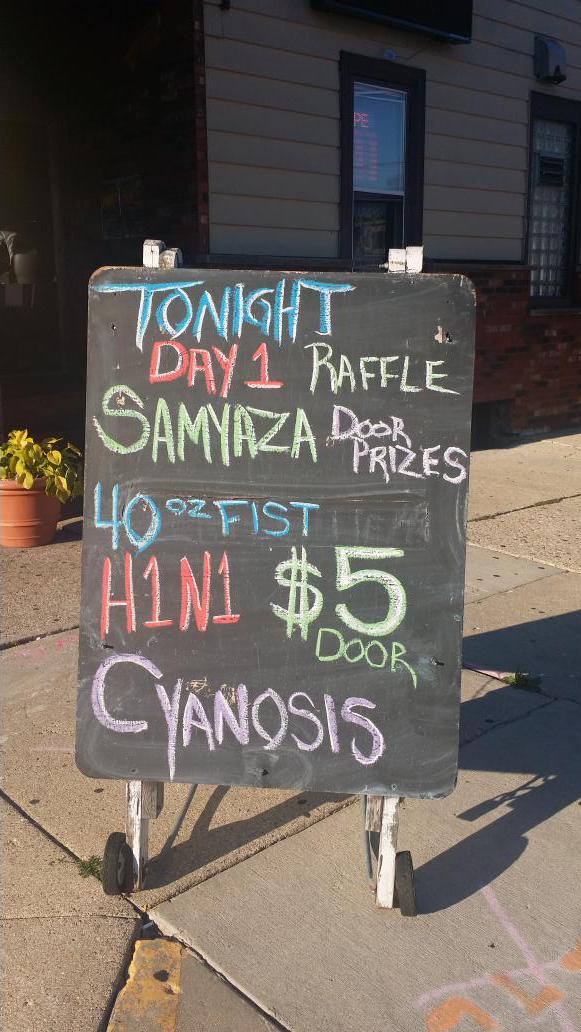 TONIGHT
DAY 1 RAFFLE
SAMYAZA DOOR PRIZES
40 oz FIST
H1N1 $5 DOOR
CYANOSIS